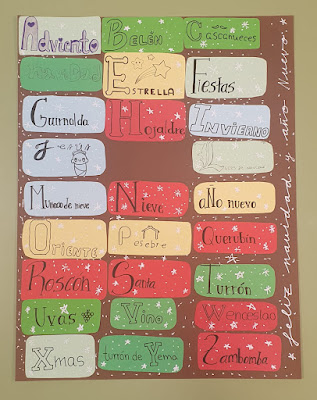 Adviento
Belén
Cascanueces
Estrella
Fiestas
Guirnalda
Hojaldre
Invierno
Jesús
Muñeco de nieve
Nieve
año nuevo
Oriente
Pesebre
Querubín
Roscón
Santa
Turrón
Uvas
Vino
Wenceslao
Xmas
turrón de Yema
Zambomba
feliz navidad y año Nuevo